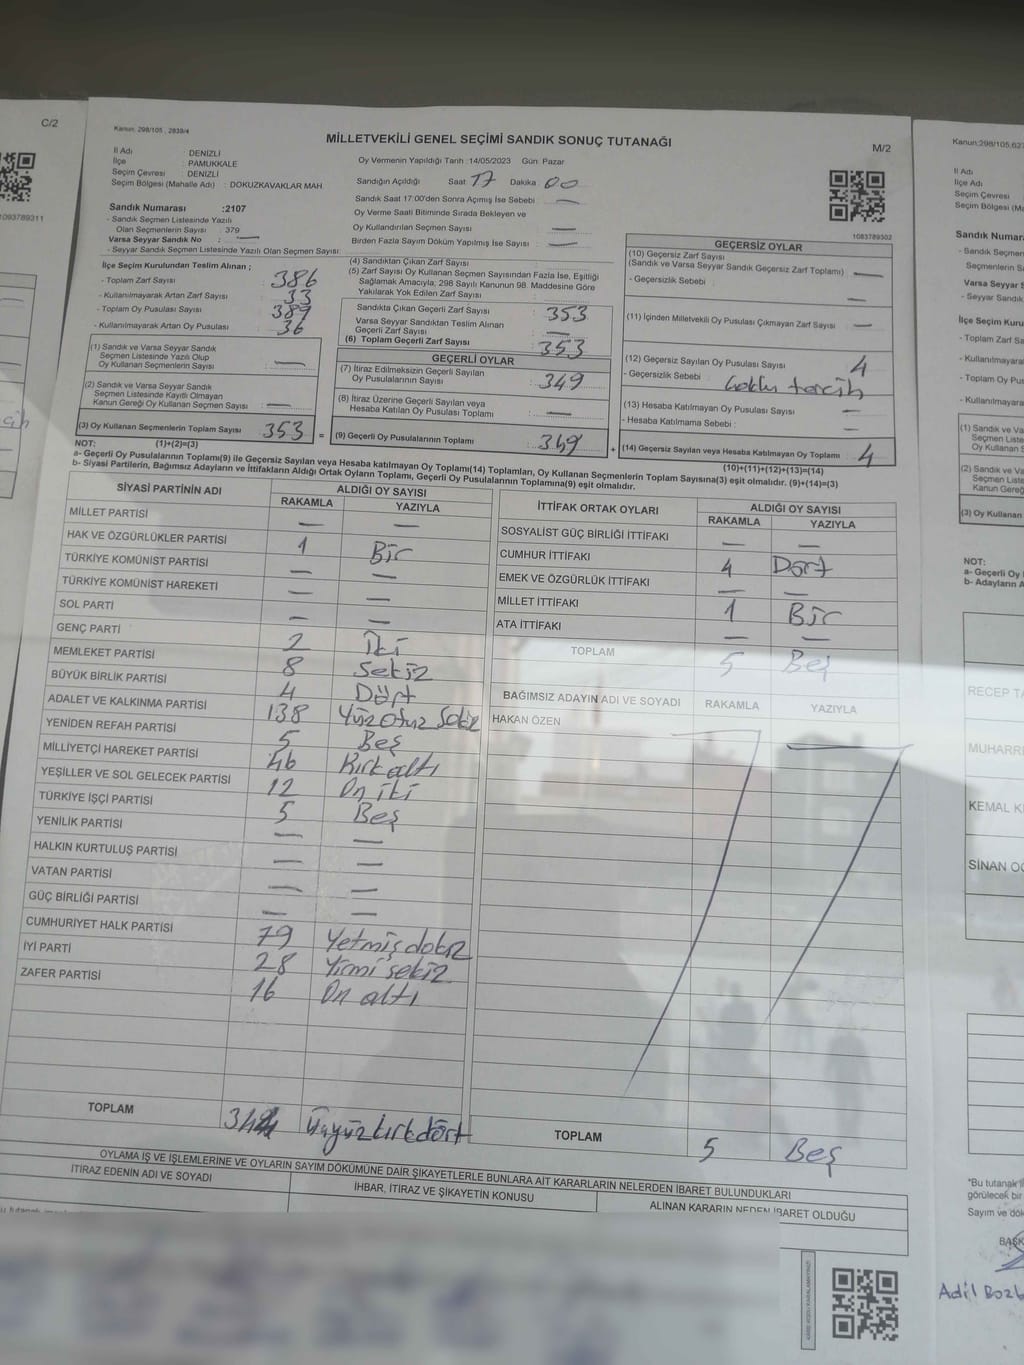 C/2
1093789311
Kanun: 298/105 , 2839/4
MİLLETVEKİLİ GENEL SEÇİMİ SANDIK SONUÇ TUTANAĞI
M/2
İl Adı : DENİZLİ
İlçe : PAMUKKALE
Seçim Çevresi : DENİZLİ
Seçim Bölgesi (Mahalle Adı) : DOKUZKAVAKLAR MAH
Oy Vermenin Yapıldığı Tarih :14/05/2023 Gün: Pazar
Sandığın Açıldığı Saat 17 Dakika 00
Sandık Saat 17:00'den Sonra Açımış İse Sebebi : —
Oy Verme Saati Bitiminde Sırada Bekleyen ve
Oy Kullandırılan Seçmen Sayısı : —
Birden Fazla Sayım Döküm Yapılmış İse Sayısı : —
1083789302
Sandık Numarası :2107
- Sandık Seçmen Listesinde Yazılı
Olan Seçmenlerin Sayısı : 379
Varsa Seyyar Sandık No : —
- Seyyar Sandık Seçmen Listesinde Yazılı Olan Seçmen Sayısı:
İlçe Seçim Kurulundan Teslim Alınan ;
- Toplam Zarf Sayısı : 386
- Kullanılmayarak Artan Zarf Sayısı : 33
- Toplam Oy Pusulası Sayısı : 389
- Kullanılmayarak Artan Oy Pusulası : 36
(1) Sandık ve Varsa Seyyar Sandık
Seçmen Listesinde Yazılı Olup
Oy Kullanan Seçmenlerin Sayısı : —
(2) Sandık ve Varsa Seyyar Sandık
Seçmen Listesinde Kayıtlı Olmayan
Kanun Gereği Oy Kullanan Seçmen Sayısı : —
(3) Oy Kullanan Seçmenlerin Toplam Sayısı : 353
(4) Sandıktan Çıkan Zarf Sayısı :
(5) Zarf Sayısı Oy Kullanan Seçmen Sayısından Fazla İse, Eşitliği
Sağlamak Amacıyla, 298 Sayılı Kanunun 98. Maddesine Göre
Yakılarak Yok Edilen Zarf Sayısı :
Sandıkta Çıkan Geçerli Zarf Sayısı : 353
Varsa Seyyar Sandıktan Teslim Alınan
Geçerli Zarf Sayısı : —
(6) Toplam Geçerli Zarf Sayısı : 353
GEÇERLİ OYLAR
(7) İtiraz Edilmeksizin Geçerli Sayılan
Oy Pusulalarının Sayısı : 349
(8) İtiraz Üzerine Geçerli Sayılan veya
Hesaba Katılan Oy Pusulası Toplamı : —
= (9) Geçerli Oy Pusulalarının Toplamı : 349
GEÇERSİZ OYLAR
(10) Geçersiz Zarf Sayısı
(Sandık ve Varsa Seyyar Sandık Geçersiz Zarf Toplamı) : —
- Geçersizlik Sebebi : —
(11) İçinden Milletvekili Oy Pusulası Çıkmayan Zarf Sayısı : —
(12) Geçersiz Sayılan Oy Pusulası Sayısı : 4
- Geçersizlik Sebebi : Çoklu tercih
(13) Hesaba Katılmayan Oy Pusulası Sayısı : —
- Hesaba Katılmama Sebebi : —
+ (14) Geçersiz Sayılan veya Hesaba Katılmayan Oy Toplamı : 4
NOT: (1)+(2)=(3) (10)+(11)+(12)+(13)=(14)
a- Geçerli Oy Pusulalarının Toplamı(9) ile Geçersiz Sayılan veya Hesaba katılmayan Oy Toplamı(14) Toplamları, Oy Kullanan Seçmenlerin Toplam Sayısına(3) eşit olmalıdır. (9)+(14)=(3)
b- Siyasi Partilerin, Bağımsız Adayların ve İttifakların Aldığı Ortak Oyların Toplamı, Geçerli Oy Pusulalarının Toplamına(9) eşit olmalıdır.
SİYASİ PARTİNİN ADI ALDIĞI OY SAYISI
RAKAMLA YAZIYLA
MİLLET PARTİSİ — —
HAK VE ÖZGÜRLÜKLER PARTİSİ 1 Bir
TÜRKİYE KOMÜNİST PARTİSİ — —
TÜRKİYE KOMÜNİST HAREKETİ — —
SOL PARTİ — —
GENÇ PARTİ 2 İki
MEMLEKET PARTİSİ 8 Sekiz
BÜYÜK BİRLİK PARTİSİ 4 Dört
ADALET VE KALKINMA PARTİSİ 138 Yüz Otuz Sekiz
YENİDEN REFAH PARTİSİ 5 Beş
MİLLİYETÇİ HAREKET PARTİSİ 46 Kırk altı
YEŞİLLER VE SOL GELECEK PARTİSİ 12 On iki
TÜRKİYE İŞÇİ PARTİSİ 5 Beş
YENİLİK PARTİSİ — —
HALKIN KURTULUŞ PARTİSİ — —
VATAN PARTİSİ — —
GÜÇ BİRLİĞİ PARTİSİ — —
CUMHURİYET HALK PARTİSİ 79 Yetmiş dokuz
İYİ PARTİ 28 Yirmi sekiz
ZAFER PARTİSİ 16 On altı
TOPLAM 344 Üçyüzkırkdört
İTTİFAK ORTAK OYLARI ALDIĞI OY SAYISI
RAKAMLA YAZIYLA
SOSYALİST GÜÇ BİRLİĞİ İTTİFAKI — —
CUMHUR İTTİFAKI 4 Dört
EMEK VE ÖZGÜRLÜK İTTİFAKI — —
MİLLET İTTİFAKI 1 Bir
ATA İTTİFAKI — —
TOPLAM 5 Beş
BAĞIMSIZ ADAYIN ADI VE SOYADI RAKAMLA YAZIYLA
HAKAN ÖZEN
TOPLAM 5 Beş
OYLAMA İŞ VE İŞLEMLERİNE VE OYLARIN SAYIM DÖKÜMÜNE DAİR ŞİKAYETLERLE BUNLARA AİT KARARLARIN NELERDEN İBARET BULUNDUKLARI
İTİRAZ EDENİN ADI VE SOYADI
İHBAR, İTİRAZ VE ŞİKAYETİN KONUSU
ALINAN KARARIN NEDEN İBARET OLDUĞU
Kanun:298/105,627
İl Adı
İlçe Adı
Seçim Çevresi
Seçim Bölgesi (Ma
Sandık Numar
- Sandık Seçmen
Seçmenlerin Sayıs
Varsa Seyyar S
- Seyyar Sandık
İlçe Seçim Kuru
- Toplam Zarf S
- Kullanılmayara
- Toplam Oy Pus
- Kullanılmayara
(1) Sandık ve Va
Seçmen Liste
Oy Kullanan S
(2) Sandık ve Va
Seçmen Liste
Kanun Gereği
(3) Oy Kullanan
NOT:
a- Geçerli Oy
b- Adayların A
RECEP TA
MUHARRE
KEMAL K
SİNAN O
*Bu tutanak
görülecek bir
Sayım ve dök
BAŞK
Adil Bozb